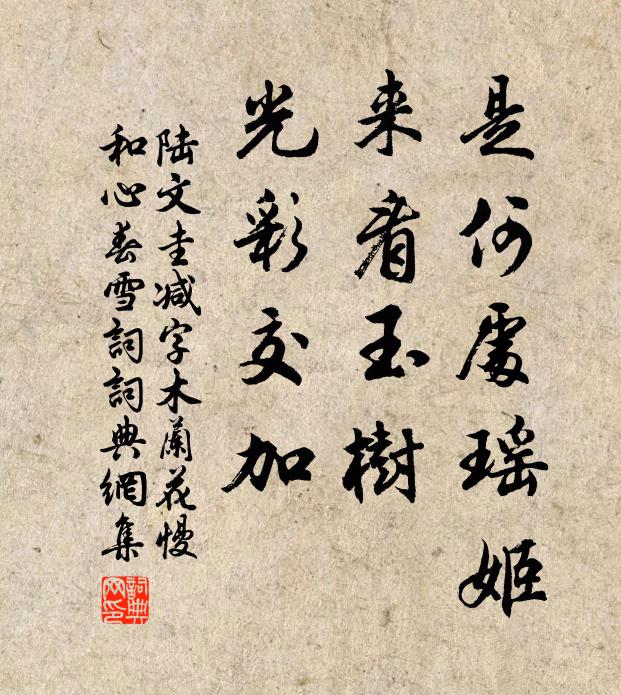 是何處瑶姬
来看玉樹
光彩交加
陆文圭减字木蘭花慢
和心春雪詞詞典網集
詞典网印